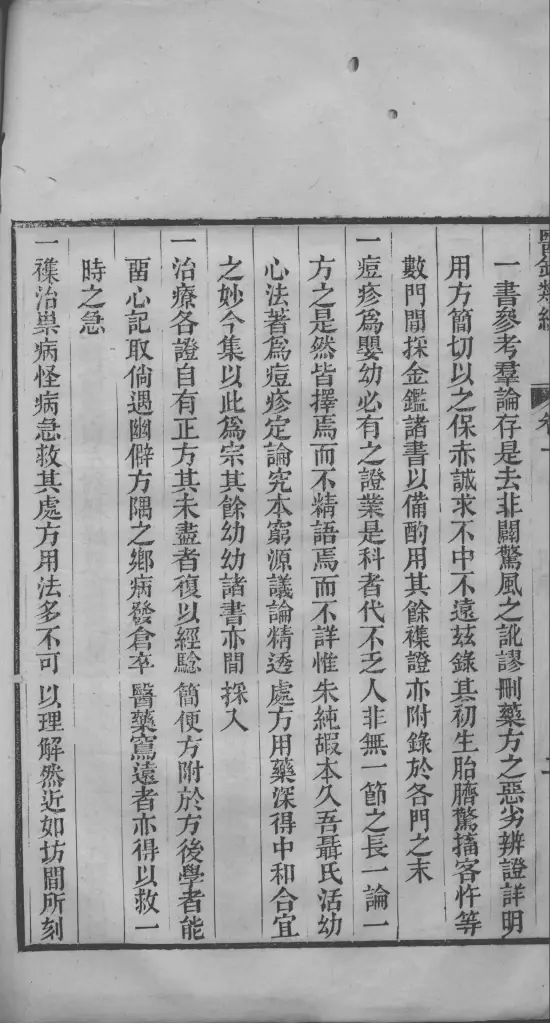 一書參考羣論存是去非闢驚風之訛謬刪藥方之惡劣辨證詳明
用方簡切以之保赤誠求不中不遠茲錄其初生胎臍驚搐客忤等
數門間採金鑑諸書以備酌用其餘襍證亦附錄於各門之末
一痘疹爲嬰幼必有之證業是科者代不乏人非無一節之長一論一
方之是然皆擇焉而不精語焉而不詳惟朱純嘏本久吾聶氏活幼
心法著爲痘疹定論究本窮源議論精透處方用藥深得中和合宜
之妙今集以此爲宗其餘幼幼諸書亦間採入
一治療各證自有正方其未盡者復以經驗簡便方附於方後學者能
畱心記取倘遇幽僻方隅之鄉病發倉卒醫藥窵遠者亦得以救一
時之急
一襍治祟病怪病急救其處方用法多不可以理解然近如坊間所刻